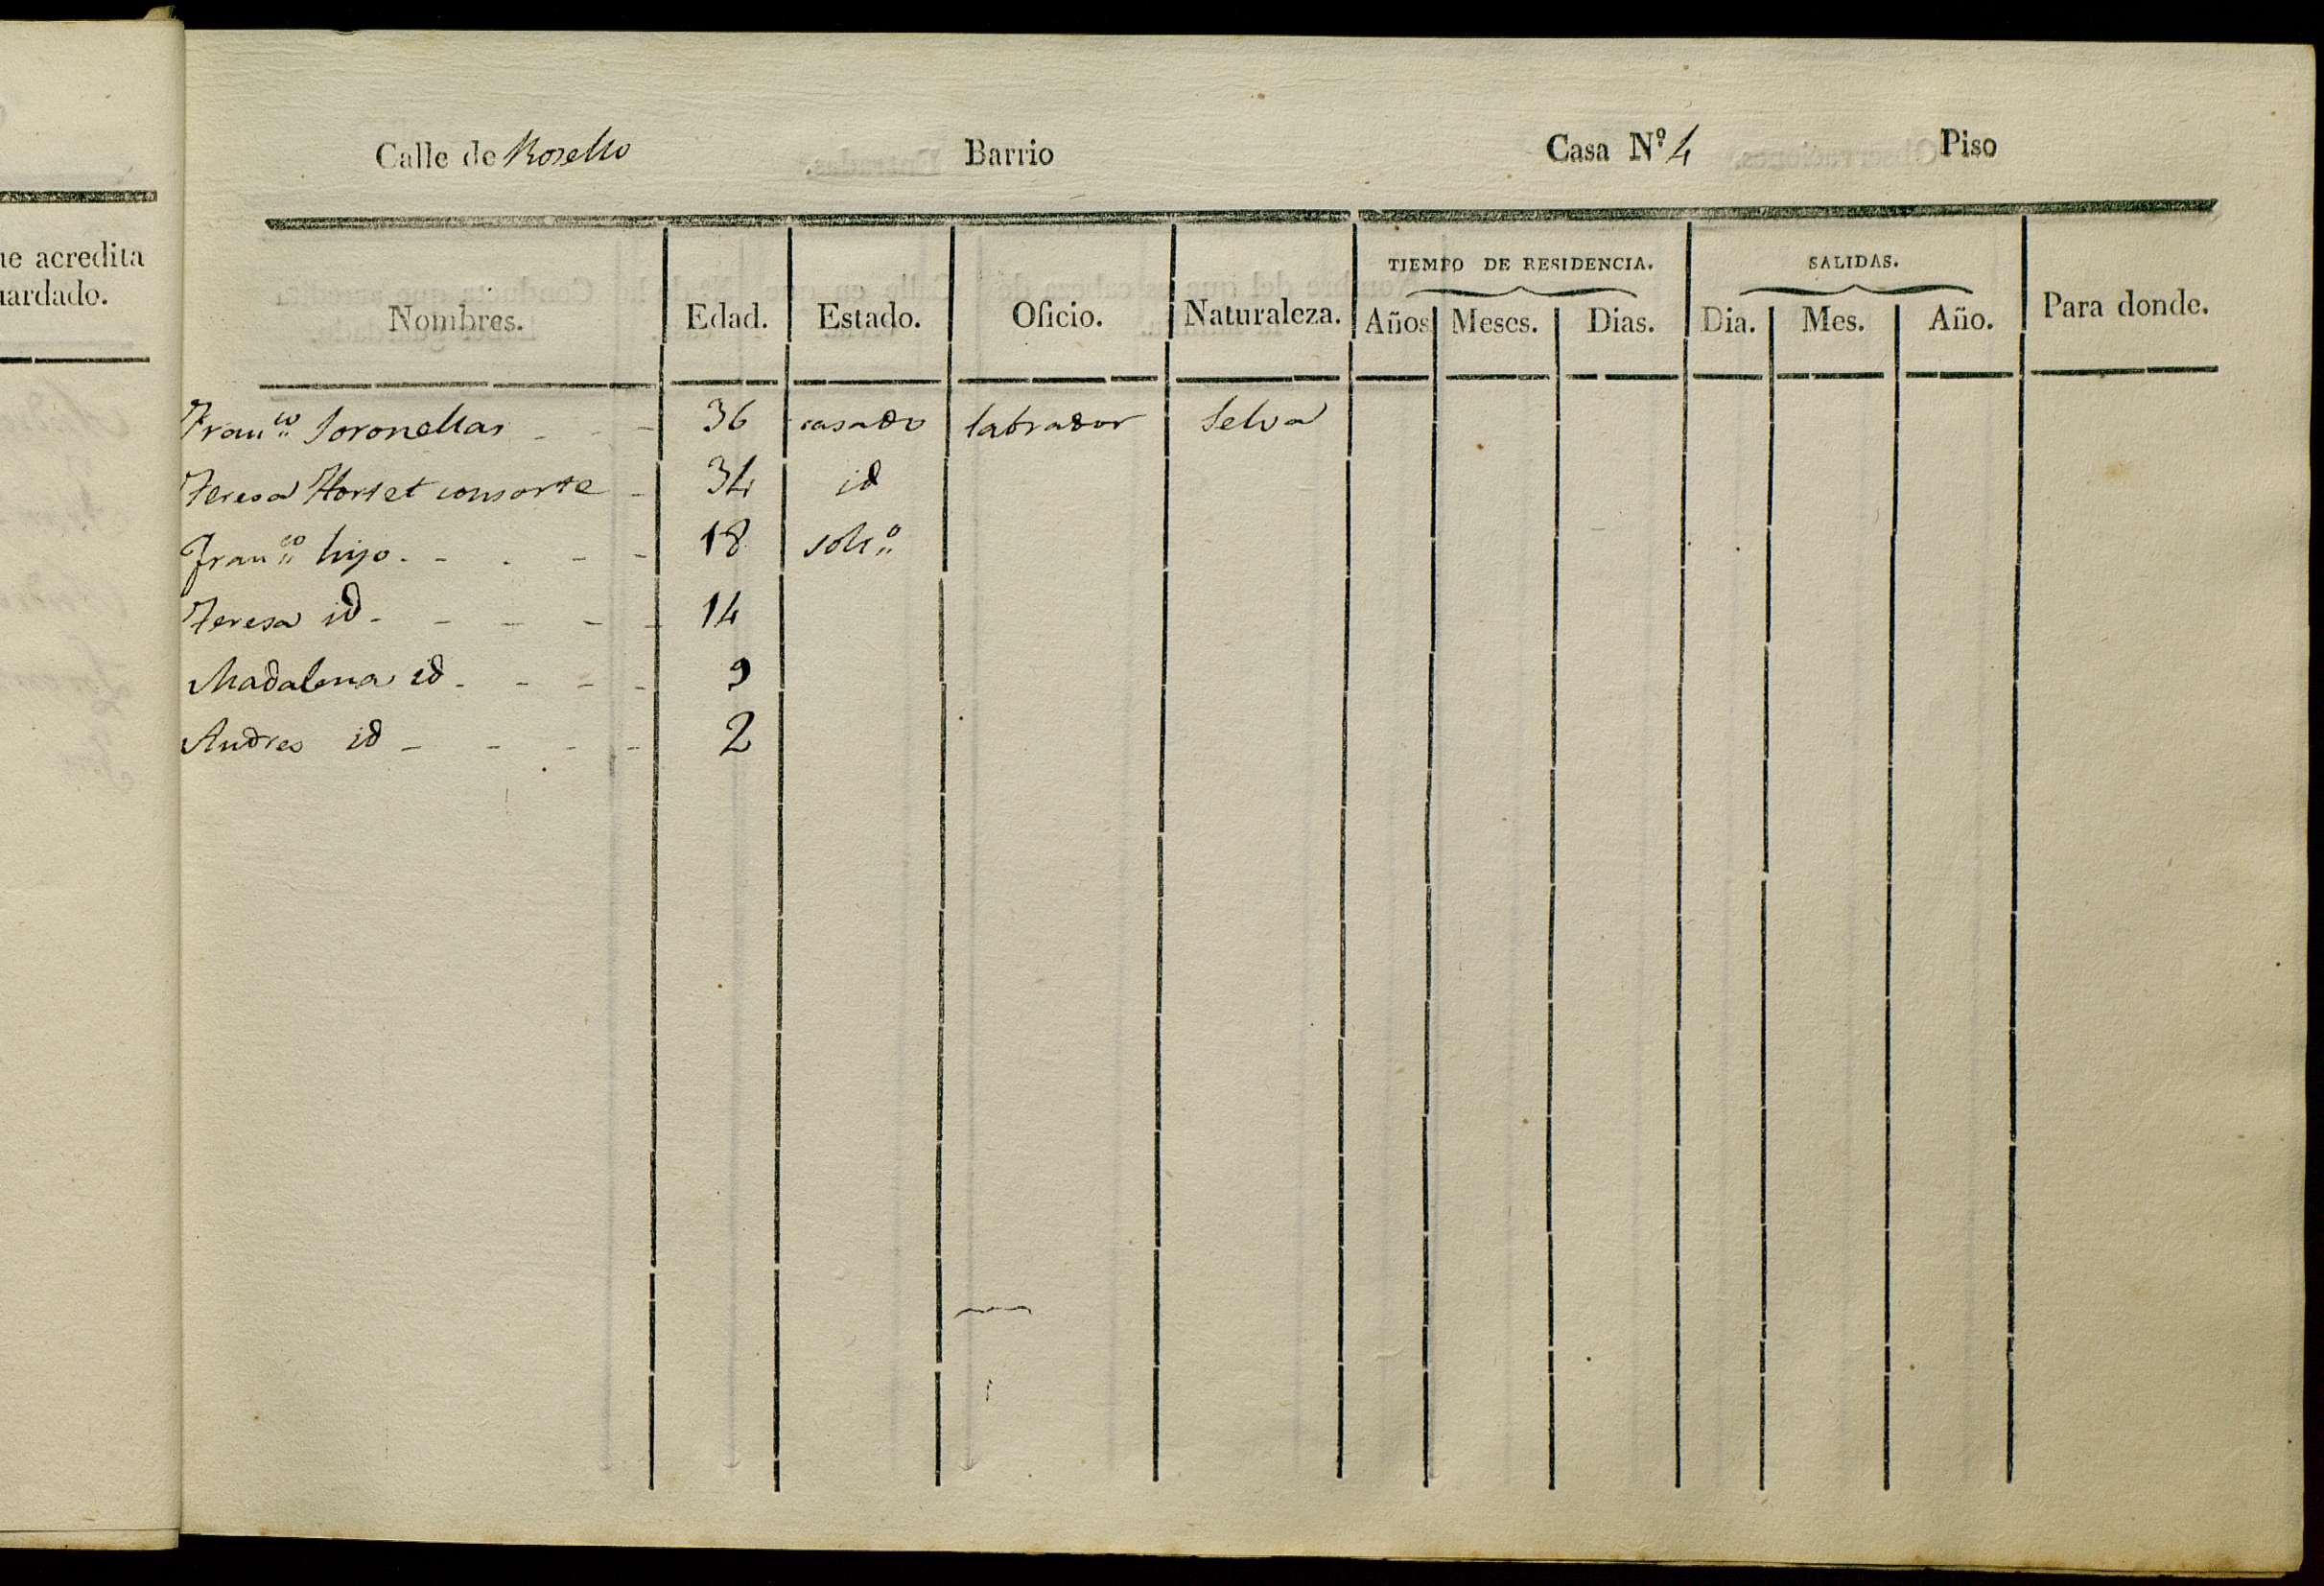 ue acredita
uardado.
Calle de Rosello Barrio Casa Nº 4 Piso
Nombres. Edad. Estado. Oficio. Naturaleza. TIEMPO DE RESIDENCIA. SALIDAS. Para donde.
Años Meses. Dias. Dia. Mes. Año.
Fran.co Soronellas - - 36 casado labrador Selva
Teresa consorte - 34 id
Fran.co hijo - - - - - 18 solt.o
Teresa id - - - - - 14
Madalena id - - - - 9
Andres id - - - - 2